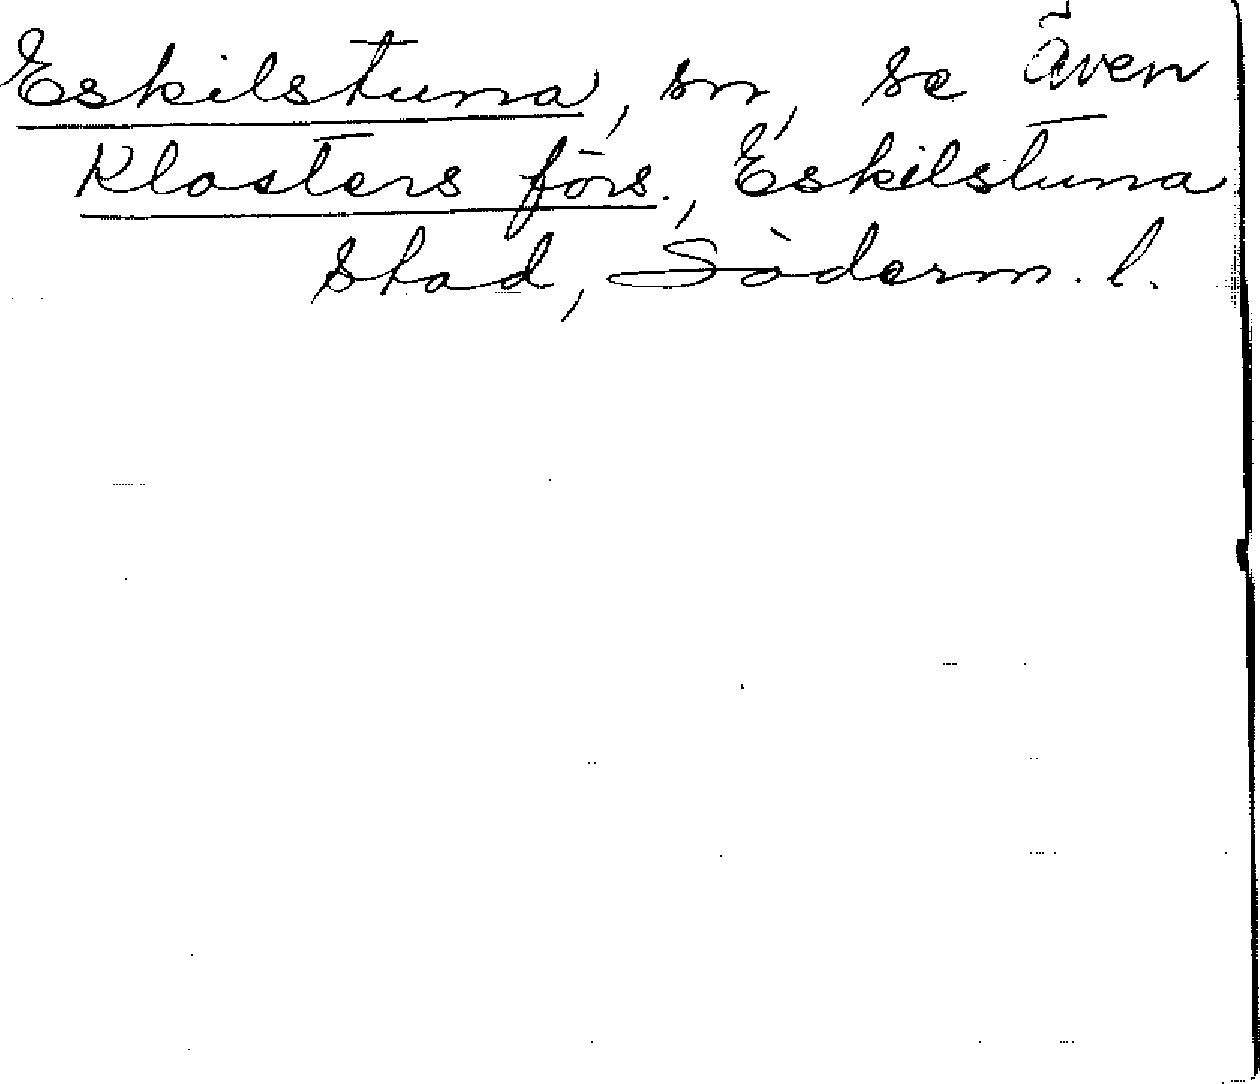 Eskilstuna, sn, se även
Klosters förs., Eskilstuna
stad, Söderm. l.